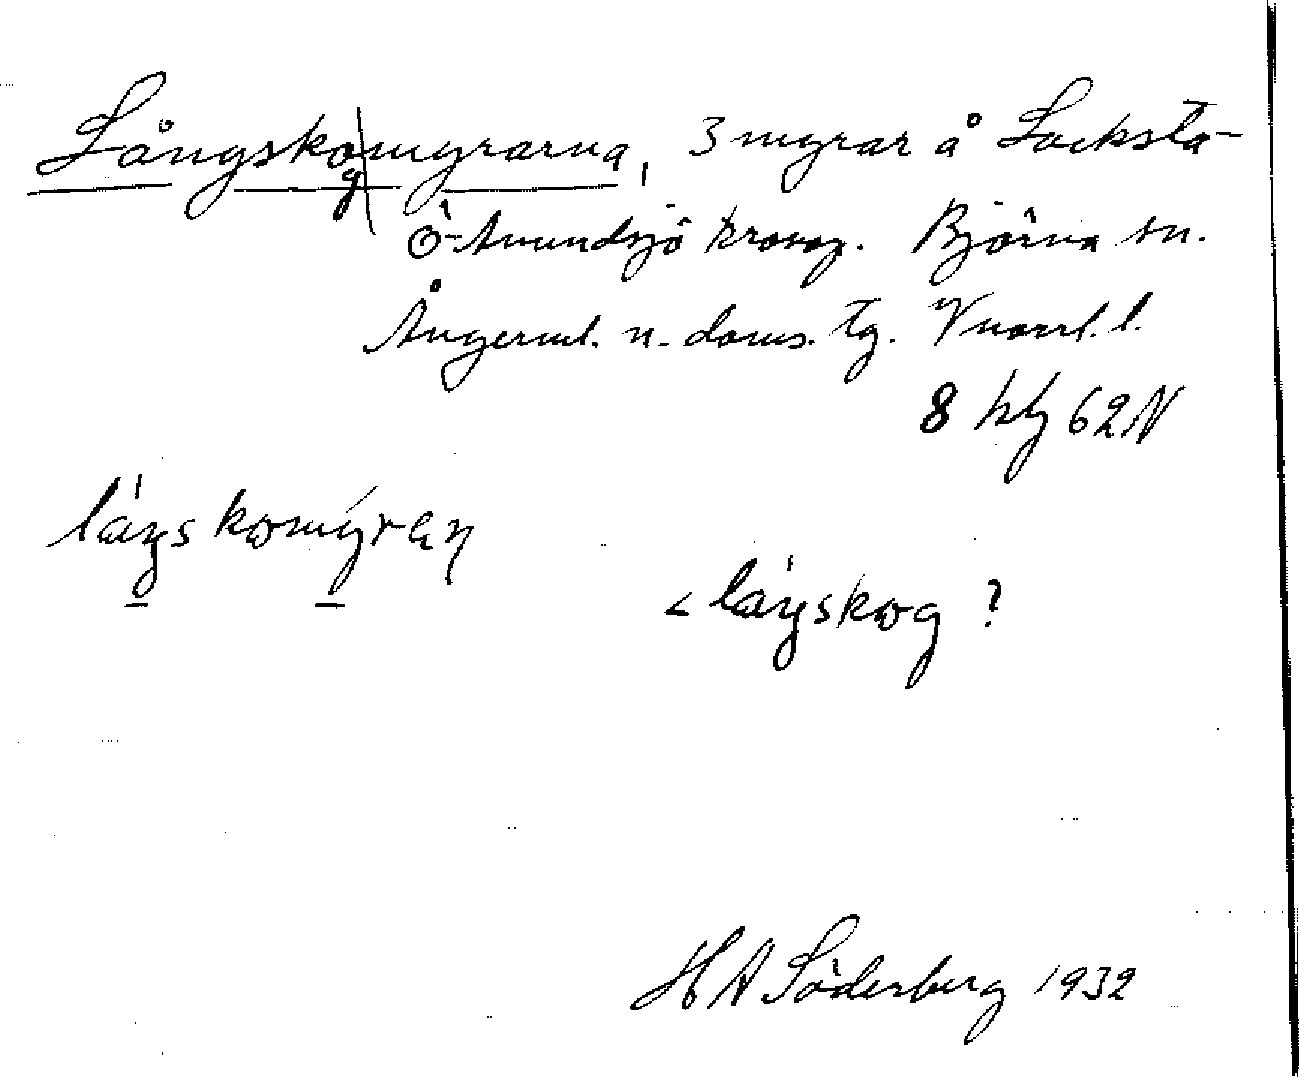 Långskogmyrarna, 3 myrar å Locksta-
Ö-Avundsjö kronop. Björna sn.
Ångerml. n. doms. tg. Vnorrl. l.
8 hbg 62 N
láŋskomýraɳ
< láŋskog ?
H A Söderberg 1932